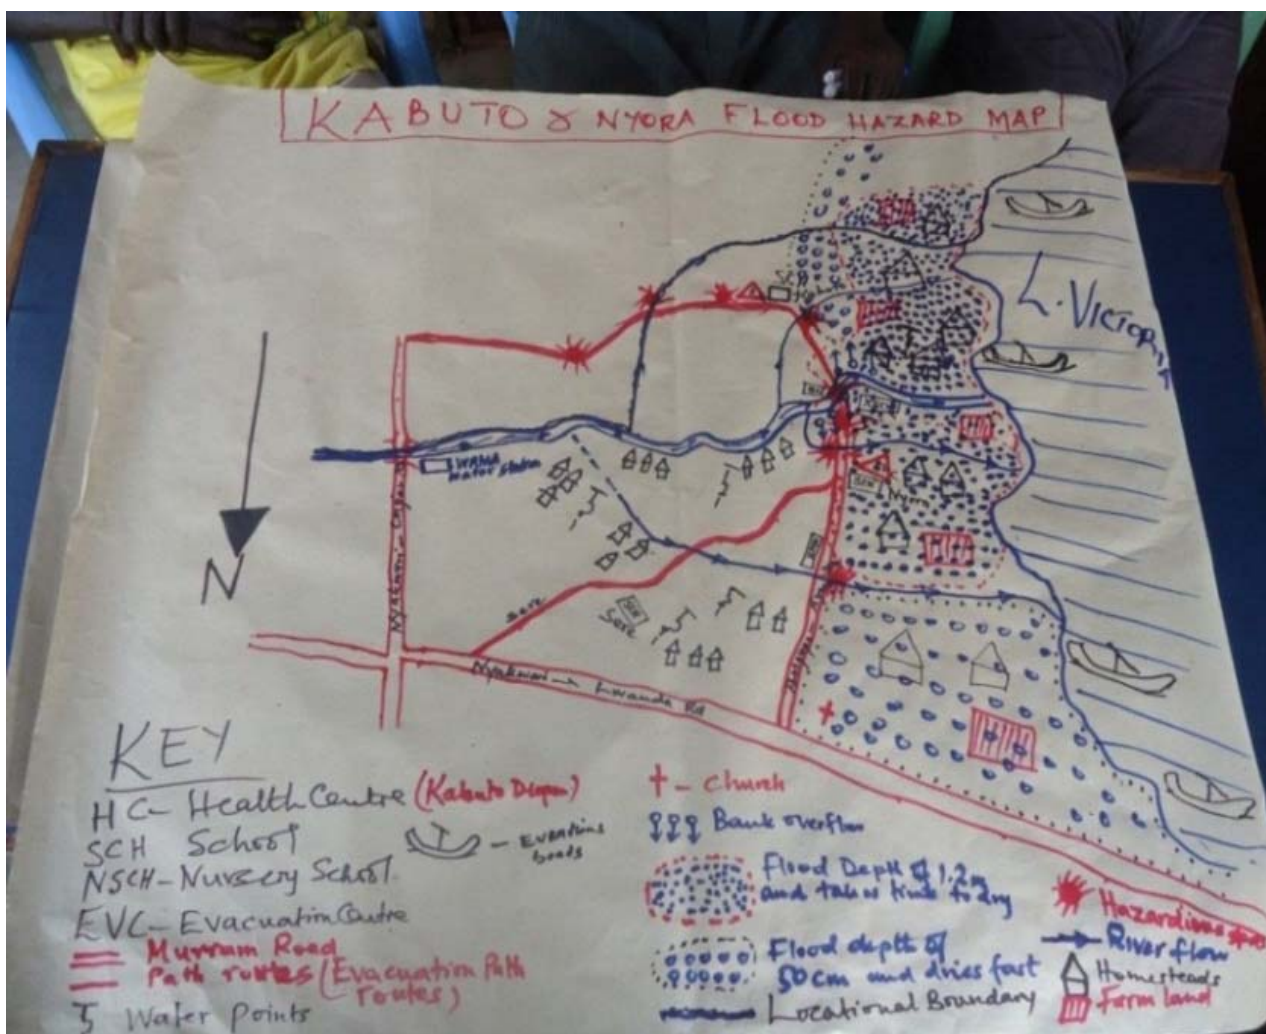 KABUTO & NYORA FLOOD HAZARD MAP
L. VICTORIA
WAHA
water station
SCH
Sare
Sare
Nyakwari → Lwanda Rd
N
KEY
HC - Health Centre (Kabuto Dispen)
SCH School
NSCH - Nursery School
EVC - Evacuation Centre
Murram Road
Path routes (Evacuation Path
routes)
Water Points
boats
† - Church
Bank overflow
Flood Depth of 1.2m
and takes time to dry
Flood depth of
50cm and dries fast
Locational Boundary
River flow
Homesteads
Farm land